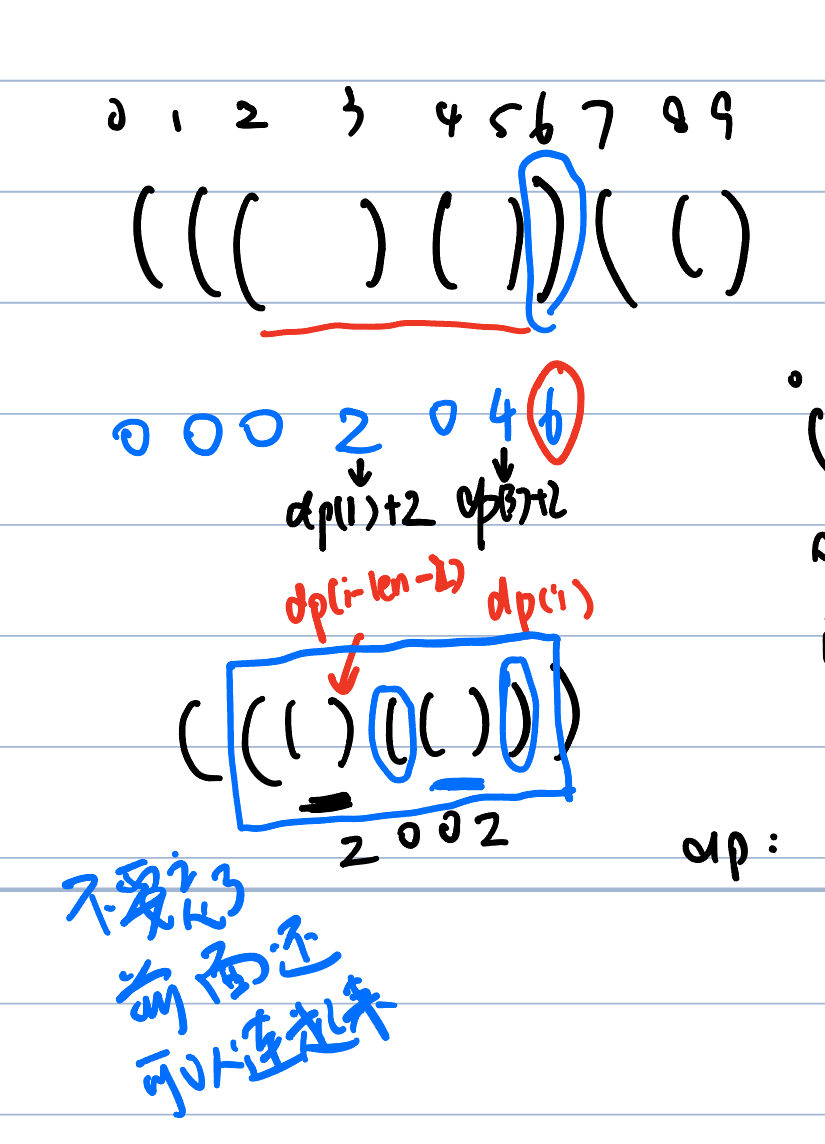 0 1 2 3 4 5 6 7 8 9
( ( ( ) ( ) ) ( ( )
0 0 0 2 0 4 6
dp(1)+2 dp(3)+2
dp(i-len-2) dp(i)
( ( ( ) ( ( ) ) )
2 0 0 2
dp :
不要忘了
前面还
可以连起来